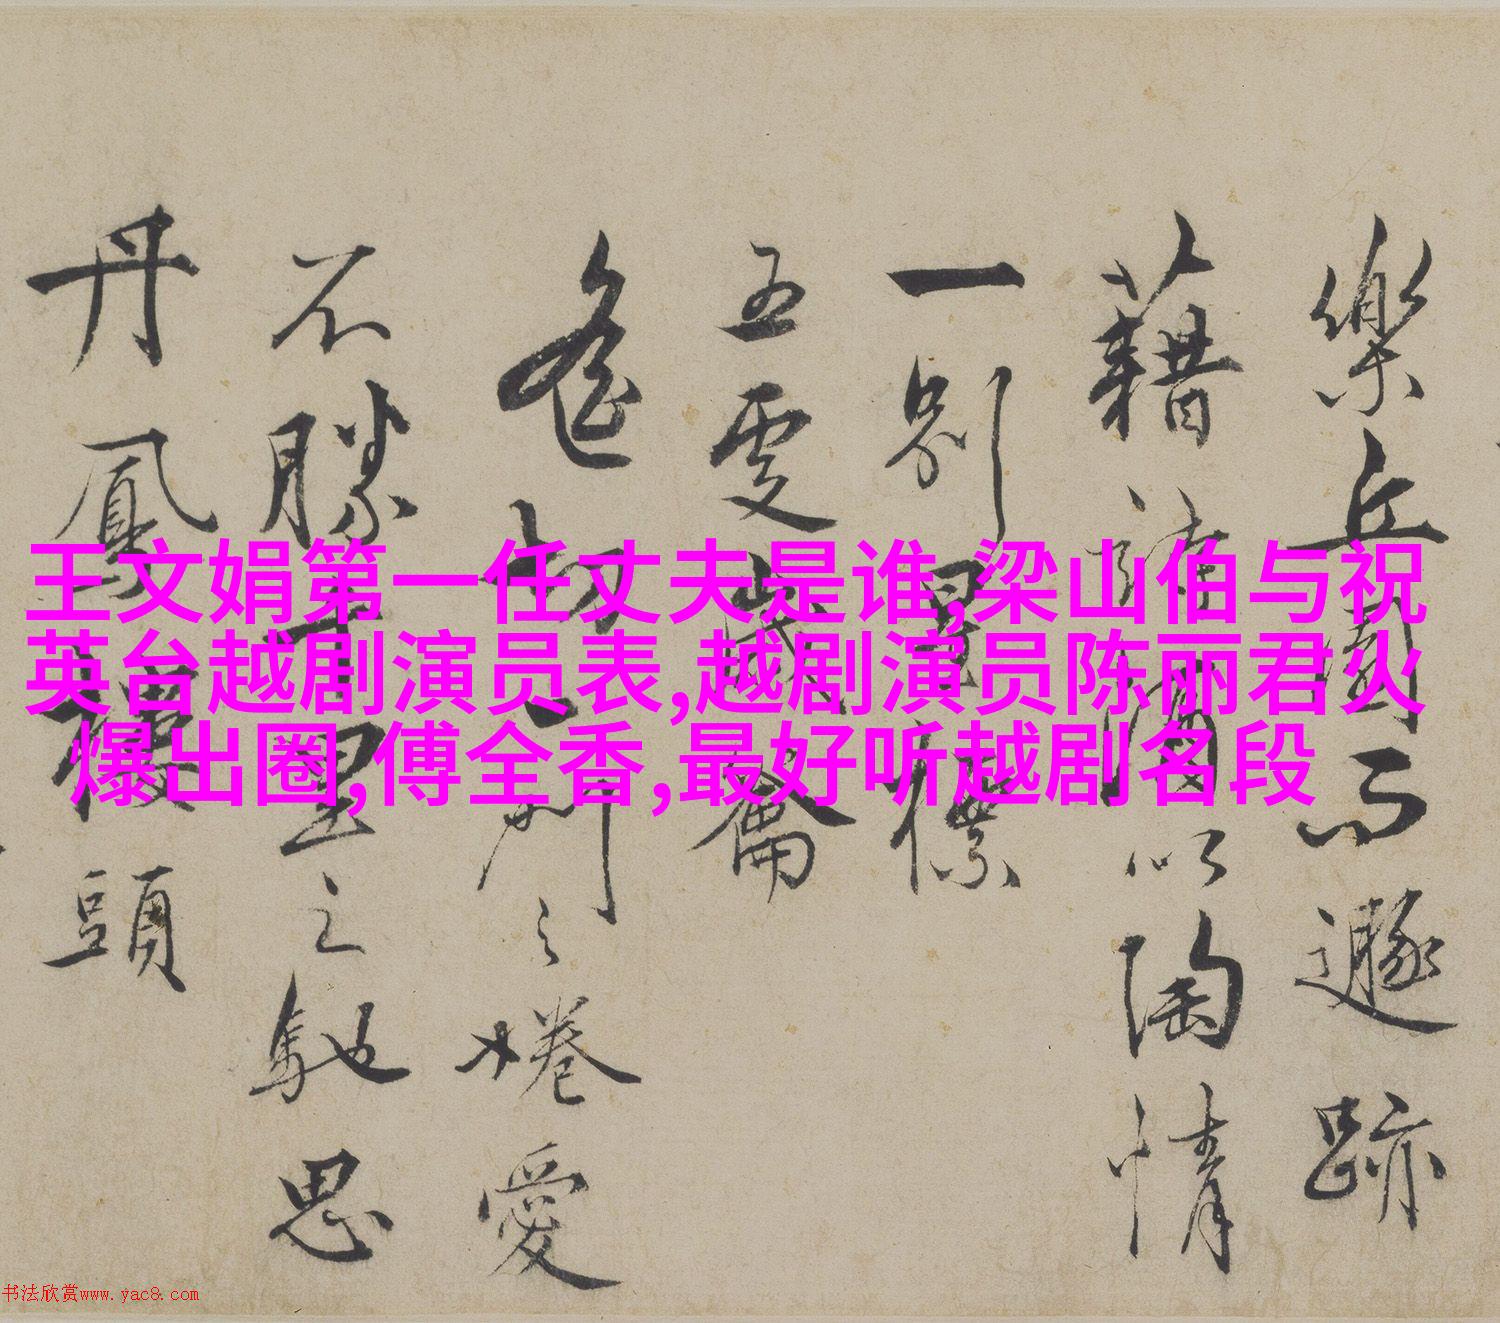 樂丘園而遯跡
藉詩酒以陶情
一別星
五更歲籥
之惓愛
不勝千里之馳思
丹鳳樓頭
王文娟第一任丈夫是谁,梁山伯与祝
英台越剧演员表,越剧演员陈丽君火
爆出圈,傅全香,最好听越剧名段
书法欣赏www.yac8.com